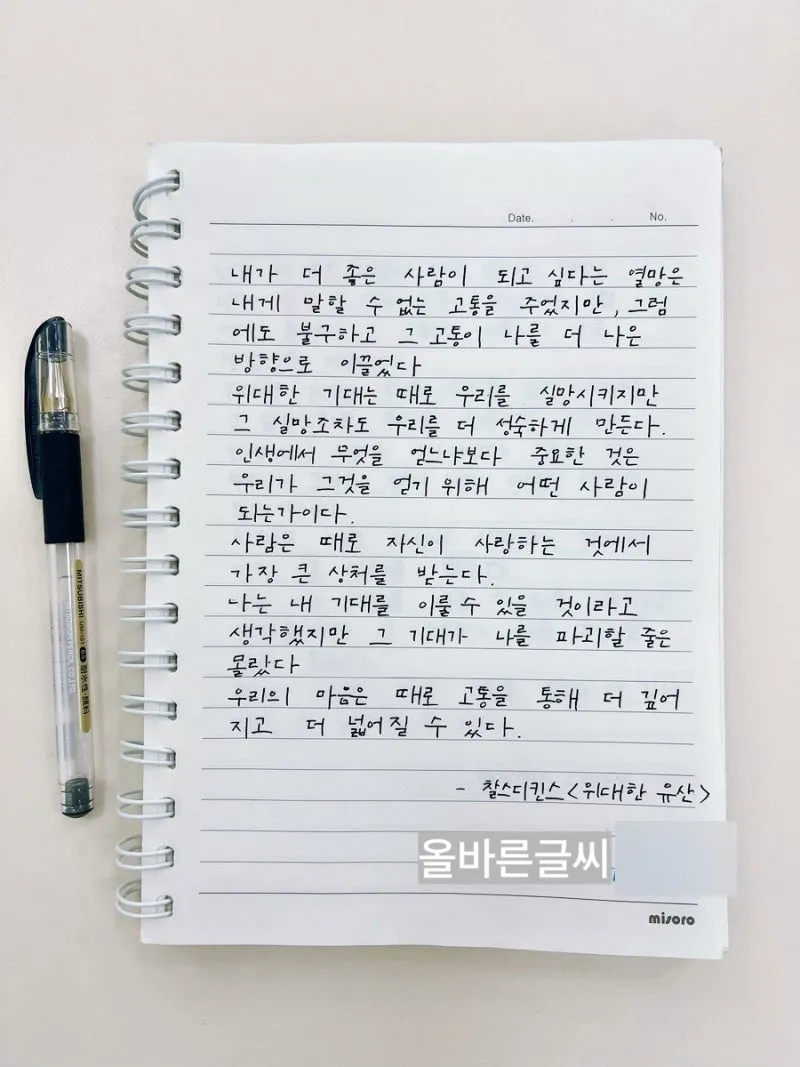 Date. . . No.
내가 더 좋은 사람이 되고 싶다는 열망은
내게 말할 수 없는 고통을 주었지만, 그럼
에도 불구하고 그 고통이 나를 더 나은
방향으로 이끌었다
위대한 기대는 때로 우리를 실망시키지만
그 실망조차도 우리를 더 성숙하게 만든다.
인생에서 무엇을 얻느냐보다 중요한 것은
우리가 그것을 얻기 위해 어떤 사람이
되는가이다.
사람은 때로 자신이 사랑하는 것에서
가장 큰 상처를 받는다.
나는 내 기대를 이룰 수 있을 것이라고
생각했지만 그 기대가 나를 파괴할 줄은
몰랐다
우리의 마음은 때로 고통을 통해 더 깊어
지고 더 넓어질 수 있다.
- 찰스디킨스<위대한 유산>
올바른글씨
misoro
MITSUBISHI